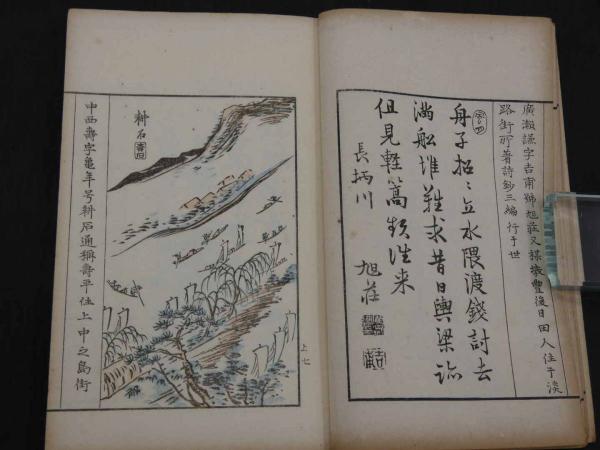 廣瀬謙字吉甫號旭莊又梅墩豊後日田人住于淡
路街所著詩鈔三編行于世
舟子招〻立水隈渡錢討去
満船堆難求昔日輿梁跡
但見軽篙頻往来
長柄川
旭莊
耕石
上七
中西壽字亀年号耕石通稱壽平住上中之島街